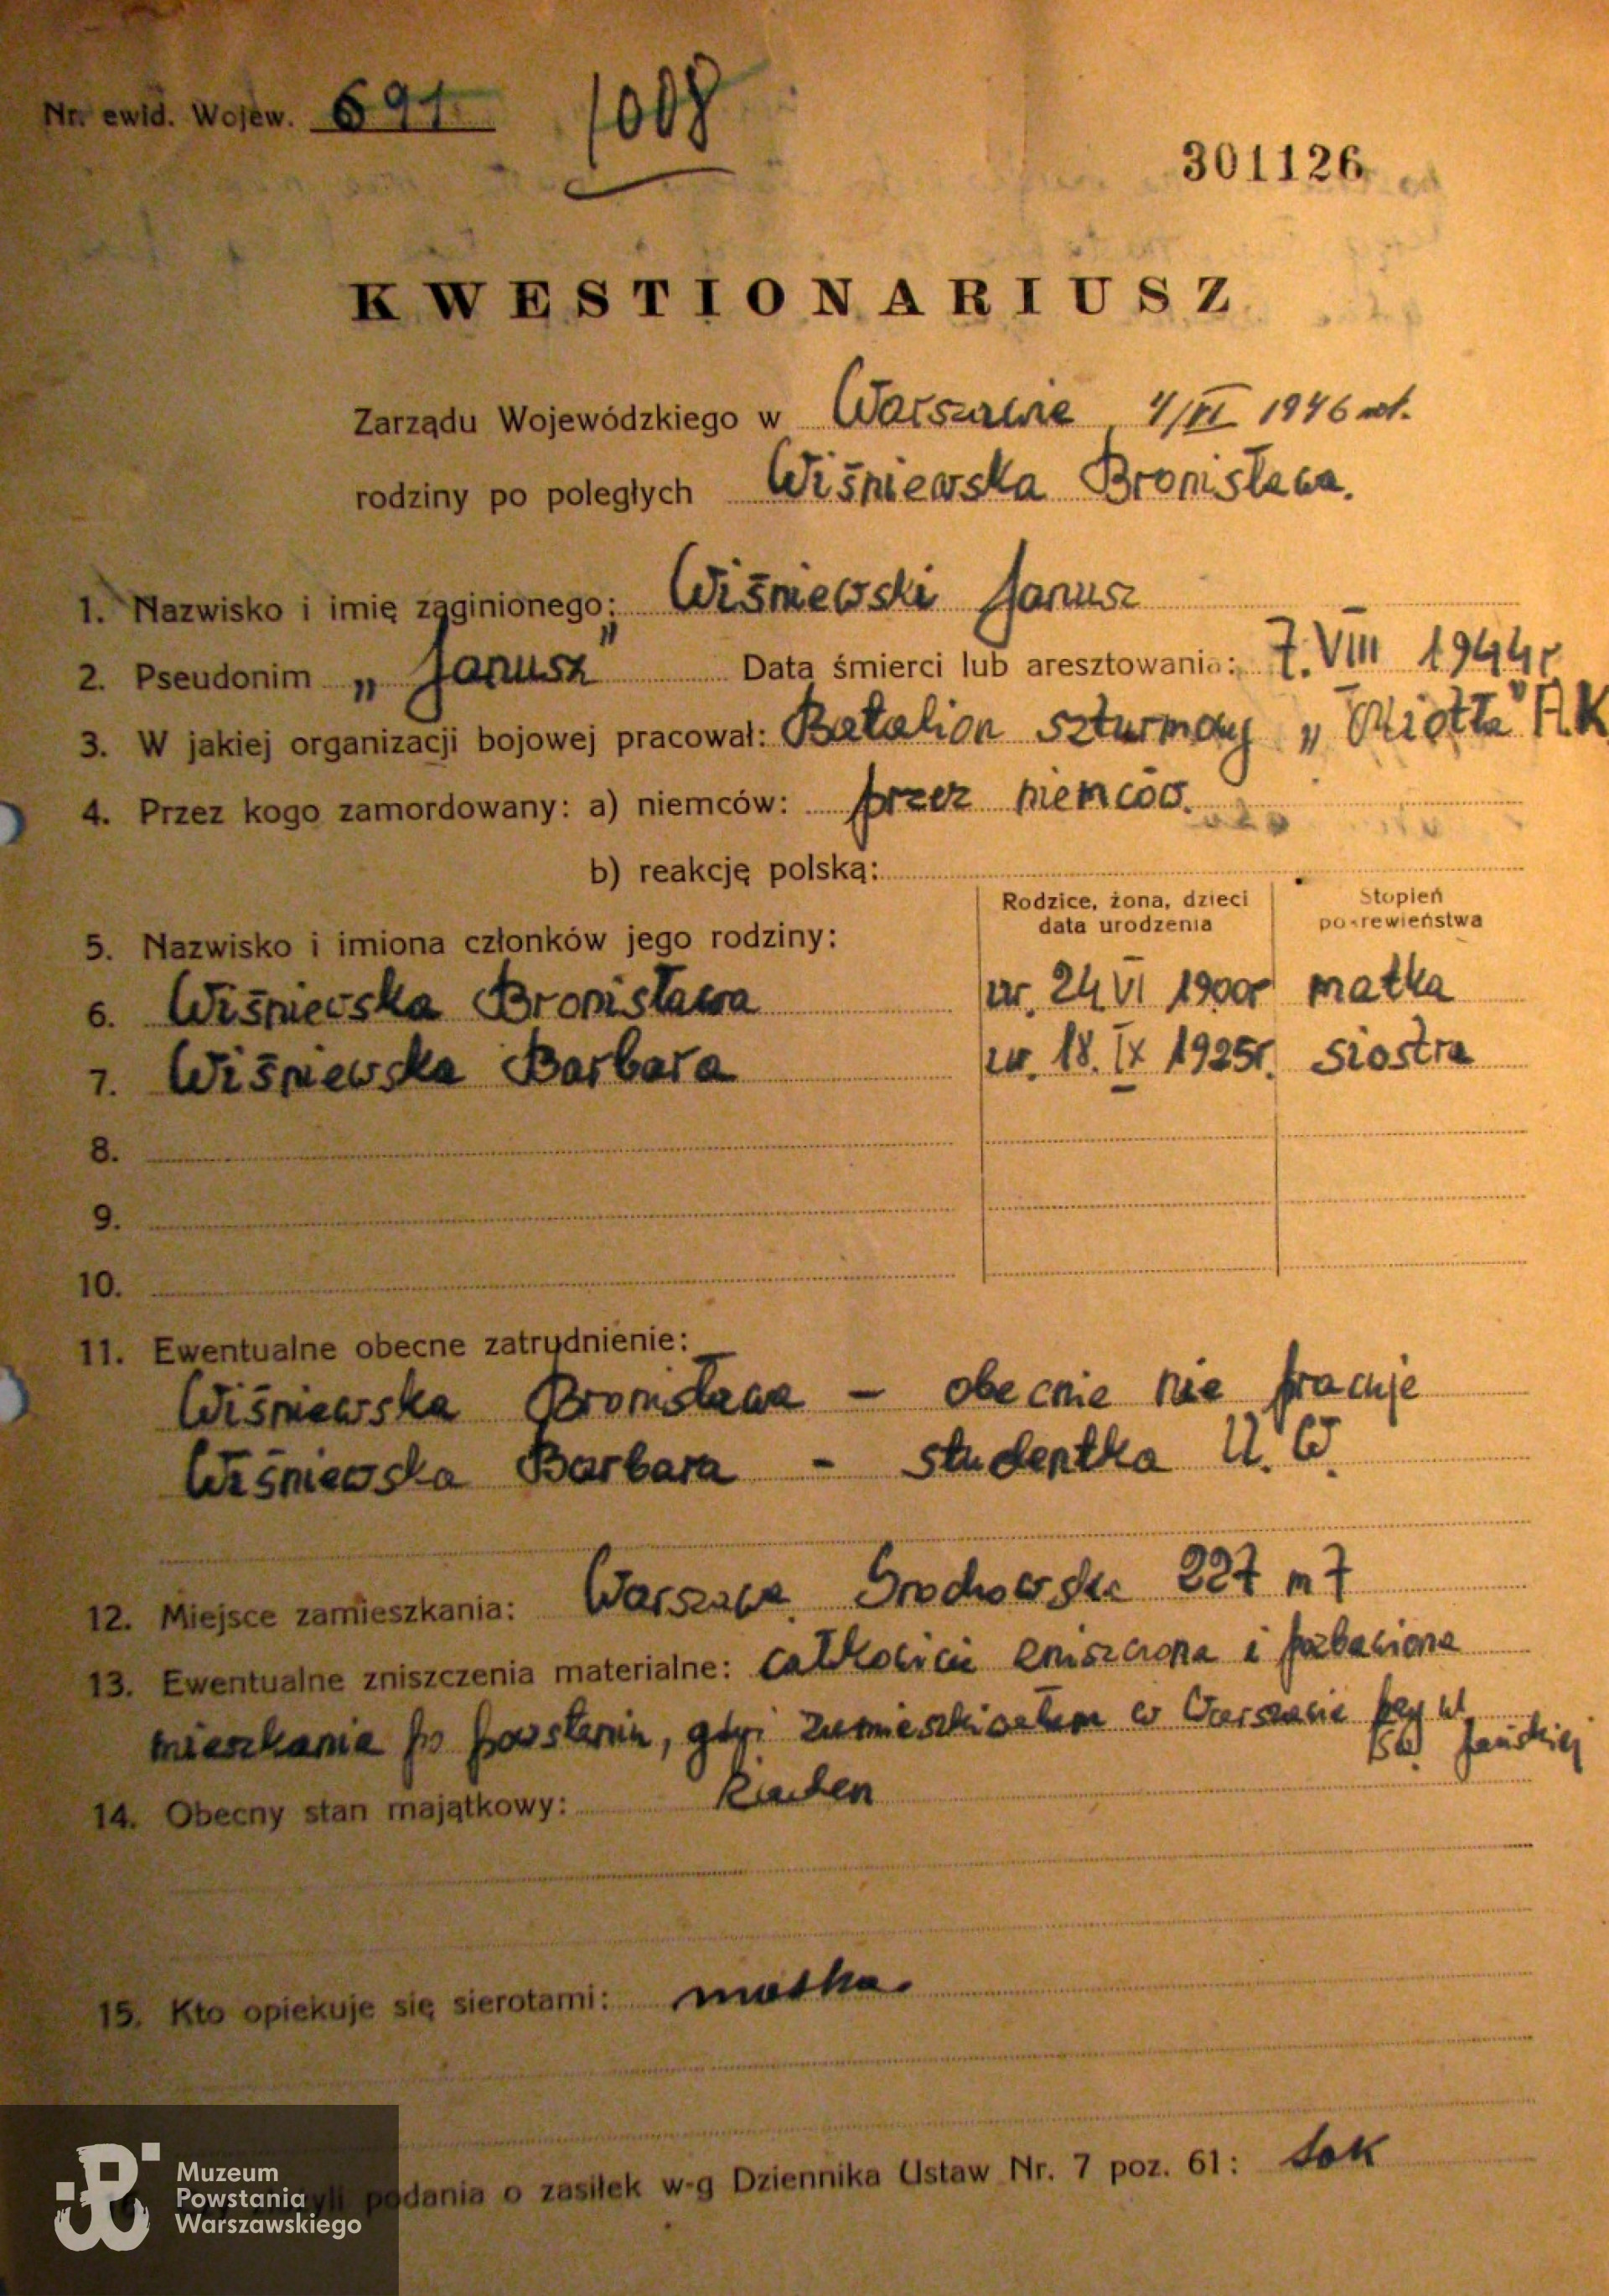 Nr. ewid. Wojew. 691 1008
301126
KWESTIONARIUSZ
Zarządu Wojewódzkiego w Warszawie 4/VI 1946
rodziny po poległych Wiśniewska Bronisława.
1. Nazwisko i imię zaginionego: Wiśniewski Janusz
2. Pseudonim „Janusz" Data śmierci lub aresztowania: 7.VIII 1944r
3. W jakiej organizacji bojowej pracował: Batalion szturmowy „Miotła" A.K
4. Przez kogo zamordowany: a) niemców: przez niemców.
b) reakcję polską:
Rodzice, żona, dzieci data urodzenia
Stopień pokrewieństwa
5. Nazwisko i imiona członków jego rodziny:
6. Wiśniewska Bronisława ur. 24 VI 1900r matka
7. Wiśniewska Barbara ur. 18. IX 1925r. siostra
8.
9.
10.
11. Ewentualne obecne zatrudnienie:
Wiśniewska Bronisława – obecnie nie pracuje
Wiśniewska Barbara - studentka U.W.
12. Miejsce zamieszkania: Warszawa Grochowska 227 m 7
13. Ewentualne zniszczenia materialne: całkowicie zniszczona i pozbawiona
mieszkania po powstaniu, gdyż zamieszkiwałam w Warszawie przy ul.
Św. Jańskiej
14. Obecny stan majątkowy: żaden
15. Kto opiekuje się sierotami: matka.
podania o zasiłek w-g Dziennika Ustaw Nr. 7 poz. 61: tak
Muzeum
Powstania
Warszawskiego